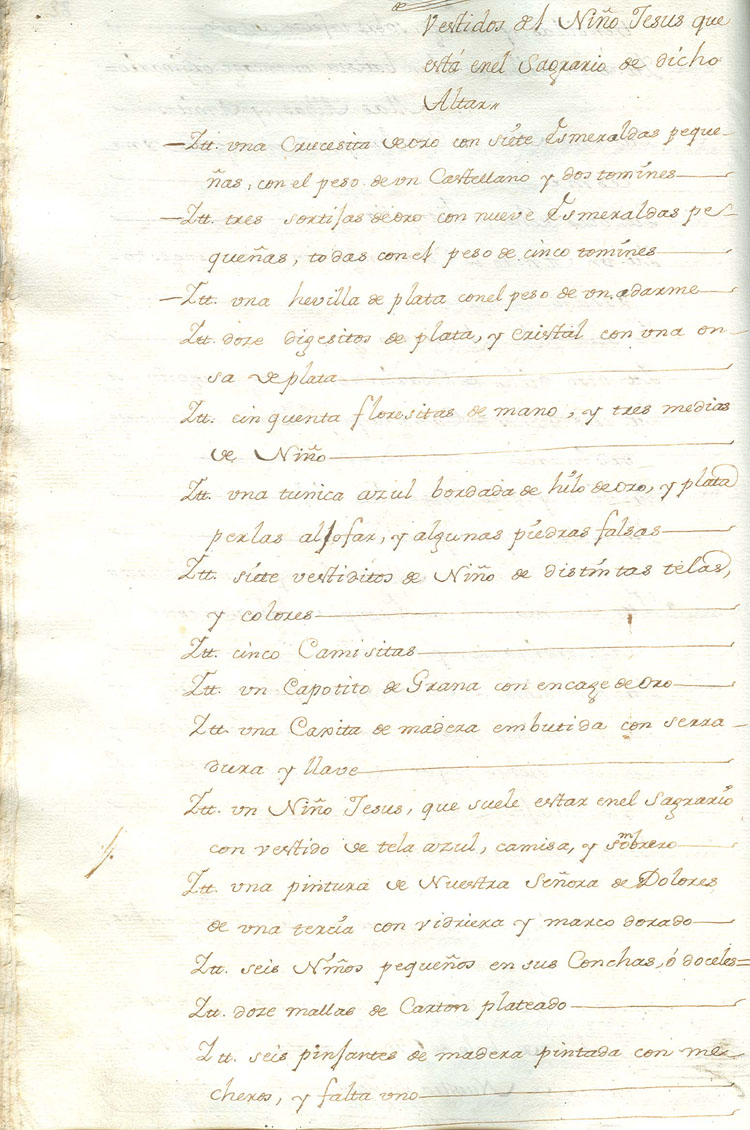 Vestidos del Niño Jesus que
está enel Sagrario de dicho
Altar,,
—Itt. vna Crucesita de oro con siéte Esmeraldas peque-
ñas, con el peso de vn Castellano y dos tomínes—
—Itt. tres sortijas de oro con nueve Esmeraldas pe-
queñas, todas con el peso de cinco tomínes—
—Itt. vna hevilla de plata conel peso de vn adarme—
Itt. doze digesitos de plata, y cristàl con vna on-
sa de plata—
Itt. cinquenta floresitas de mano, y tres medias
de Niño—
Itt. vna tunica azul bordada de hílo de oro, y plata
perlas aljofar, y algunas piédras falsas—
Itt. siéte vestiditos de Niño de distíntas telas,
y colores—
Itt. cinco Camisitas—
Itt. vn Capotito de Grana con encage de Oro—
Itt. vna Caxita de madera embutida con serra-
dura y llave—
Itt. vn Niño Jesus, que suele estar enel Sagrarió
con vestido de tela azul, camisa, y sombrero—
Itt. vna pintura de Nuestra Señora de Dolores
de vna tercía con vidriera y marco dorado—
Itt. seis Níños pequeños en sus Conchas, ó doceles=
Itt. doze mallas de Carton plateado—
Itt. seis pinjantes de madera pintada con me-
cheros, y falta vno—